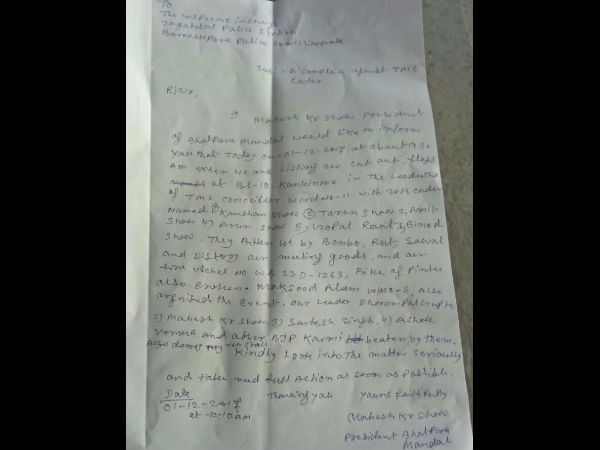 To
The Inspector incharge
Jagatdal Police Station
Barrackpore Police comissionerate
Sub:- A complain against TMC
Cader
R/sir,
I Mahesh Kr Show President
of Bhatpara Mandal would like to inform
you that Today on 01-12-2017 at about 9:30
AM when we are listing our cut out, flags
at BL-10, Kankinara in the Leadership
of TMC concillor word No-11 with 20th cader
Named ① Kanchan Show ② Tarun Show 3, Amit
Show 4) Arun Show 5) Gopal Raut, 6, Binod
Show. They Bitten Us by Bombo, Rod, Sawal
and Distroy our meeting goods, and our
Vehcel No WB 23D-1263,
also Broken. Maksood Alam word-8, Also
orgnised the Event. our Leader Dharampal Gupta
2) Mahesh Kr Show, 3) Santosh Singh, 4) Ashok
Verma and other BJP Karmi beaten by them.
Also
Kindly Look into The matter seriously
and take need full Action as soon as Possible.
Date Thanking you yours faithfully
01-12-2017
at -10:10 AM
Mahesh Kr Show
President Bhatpara
Mandal